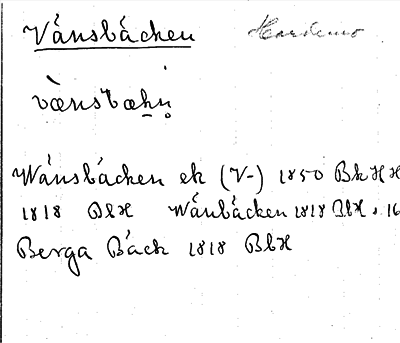 Vånsbäcken Hardemo
vænsbækn̥
Wånsbäcken ek (V-) 1850 BkHH
1818 BlH Wånbäcken 1818 BlH s. 16
Berga Bäck 1818 BlH